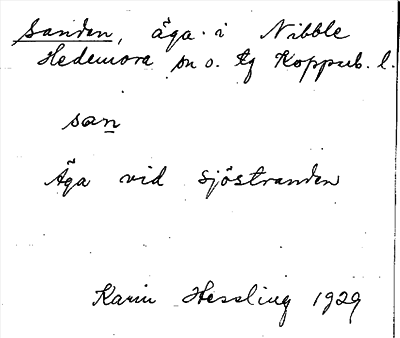 Sanden, äga i Nibble
Hedemora sn o. tg Koppub. l.
san
Äga vid sjöstranden
Karin Hessling 1929